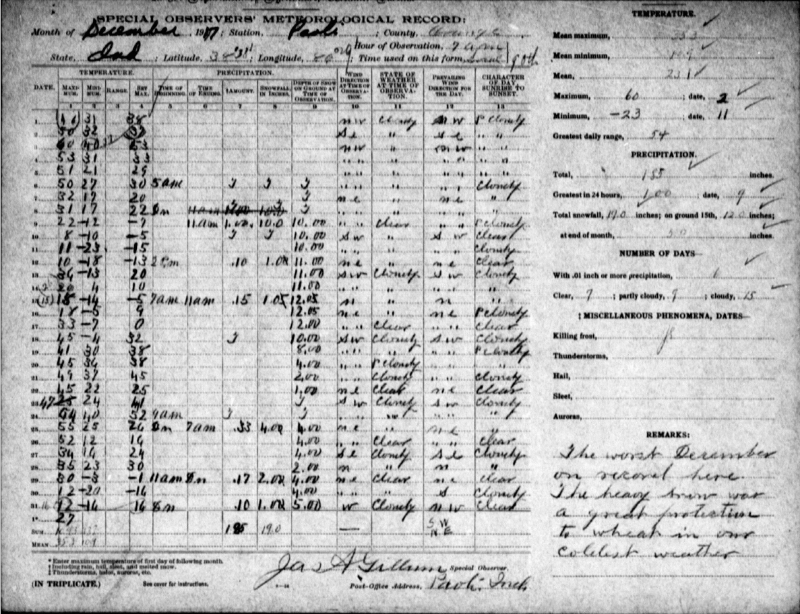 SPECIAL OBSERVERS' METEOROLOGICAL RECORD:
Month of December, 1917; Station, Paoli; County, Orange
State, Ind; Latitude, ; Longitude, ; Hour of Observation, 7 a.m.
Time used on this form, 90th
DATE. TEMPERATURE. PRECIPITATION.
MAXIMUM. MINIMUM. RANGE. SET MAX. TIME OF BEGINNING. TIME OF ENDING. AMOUNT. SNOWFALL IN INCHES. DEPTH OF SNOW ON GROUND AT TIME OF OBSERVATION. WIND DIRECTION AT TIME OF OBSERVATION. STATE OF WEATHER AT TIME OF OBSERVATION. PREVAILING WIND DIRECTION FOR THE DAY. CHARACTER OF DAY, SUNRISE TO SUNSET.
31 38 nw Cloudy nw P Cloudy
50 32 se " se "
60 40 53 nw " nw "
53 31 33 " " " " " "
51 21 29 " " " " " "
50 27 30 5am T T T " " " " " Cloudy
32 17 20 T ne " ne "
31 17 22 T " " " " " "
22 -12 -7 11am 1.00 10.0 10.00 " " Clear " " P Cloudy
8 -10 -5 T T 10.00 sw " sw Clear
11 -23 -15 10.00 " " " " " Cloudy
10 -18 -13 .10 1.00 11.00 ne " ne Clear
36 -13 20 11.00 sw Cloudy sw Cloudy
20 4 10 11.00 " " " " " "
15 -14 -5 7am 11am .15 1.05 12.05 n " n "
18 -5 9 12.05 ne " ne P Cloudy
33 -7 0 12.00 " " Clear " " Clear
45 -4 32 T 10.00 sw Cloudy sw Cloudy
41 30 38 8.00 " " " " " P Cloudy
45 36 38 4.00 " " P Cloudy " " "
49 37 45 2.00 " " Cloudy " " Cloudy
45 22 25 1.00 ne Clear ne Clear
47 25 24 41 T sw Cloudy sw Cloudy
54 40 52 9am T T " " " " " "
55 25 26 7am .33 4.00 4.00 ne " ne "
52 12 14 4.00 " " Clear " " Clear
34 14 24 4.00 se Cloudy se Cloudy
35 23 30 2.00 n " n "
30 -3 -1 11am .17 2.00 4.00 ne Clear ne Clear
12 -20 -14 4.00 " " " s Cloudy
12 -14 16 .10 1.00 5.00 w Cloudy nw Clear
27
SUM 185 19.0
MEAN
* Enter maximum temperature of first day of following month.
† Including rain, hail, sleet, and melted snow.
‡ Thunderstorms, halos, auroras, etc.
(IN TRIPLICATE.)
See cover for instructions.
Jas A Gillum Special Observer.
Post-Office Address, Paoli Ind.
TEMPERATURE.
Mean maximum
Mean minimum
Mean, 23.1
Maximum, 60; date, 2
Minimum, -23; date, 11
Greatest daily range, 54
PRECIPITATION.
Total, 185 inches.
Greatest in 24 hours, 1.00; date, 9
Total snowfall, 19.0 inches; on ground 15th, 12.0 inches;
at end of month, 5.0 inches.
NUMBER OF DAYS—
With .01 inch or more precipitation, 6
Clear, 7; partly cloudy, 9; cloudy, 15
‡ MISCELLANEOUS PHENOMENA, DATES—
Killing frost,
Thunderstorms,
Hail,
Sleet,
Auroras,
REMARKS:
The worst December
on record here.
The heavy snow was
a great protection
to wheat in our
coldest weather